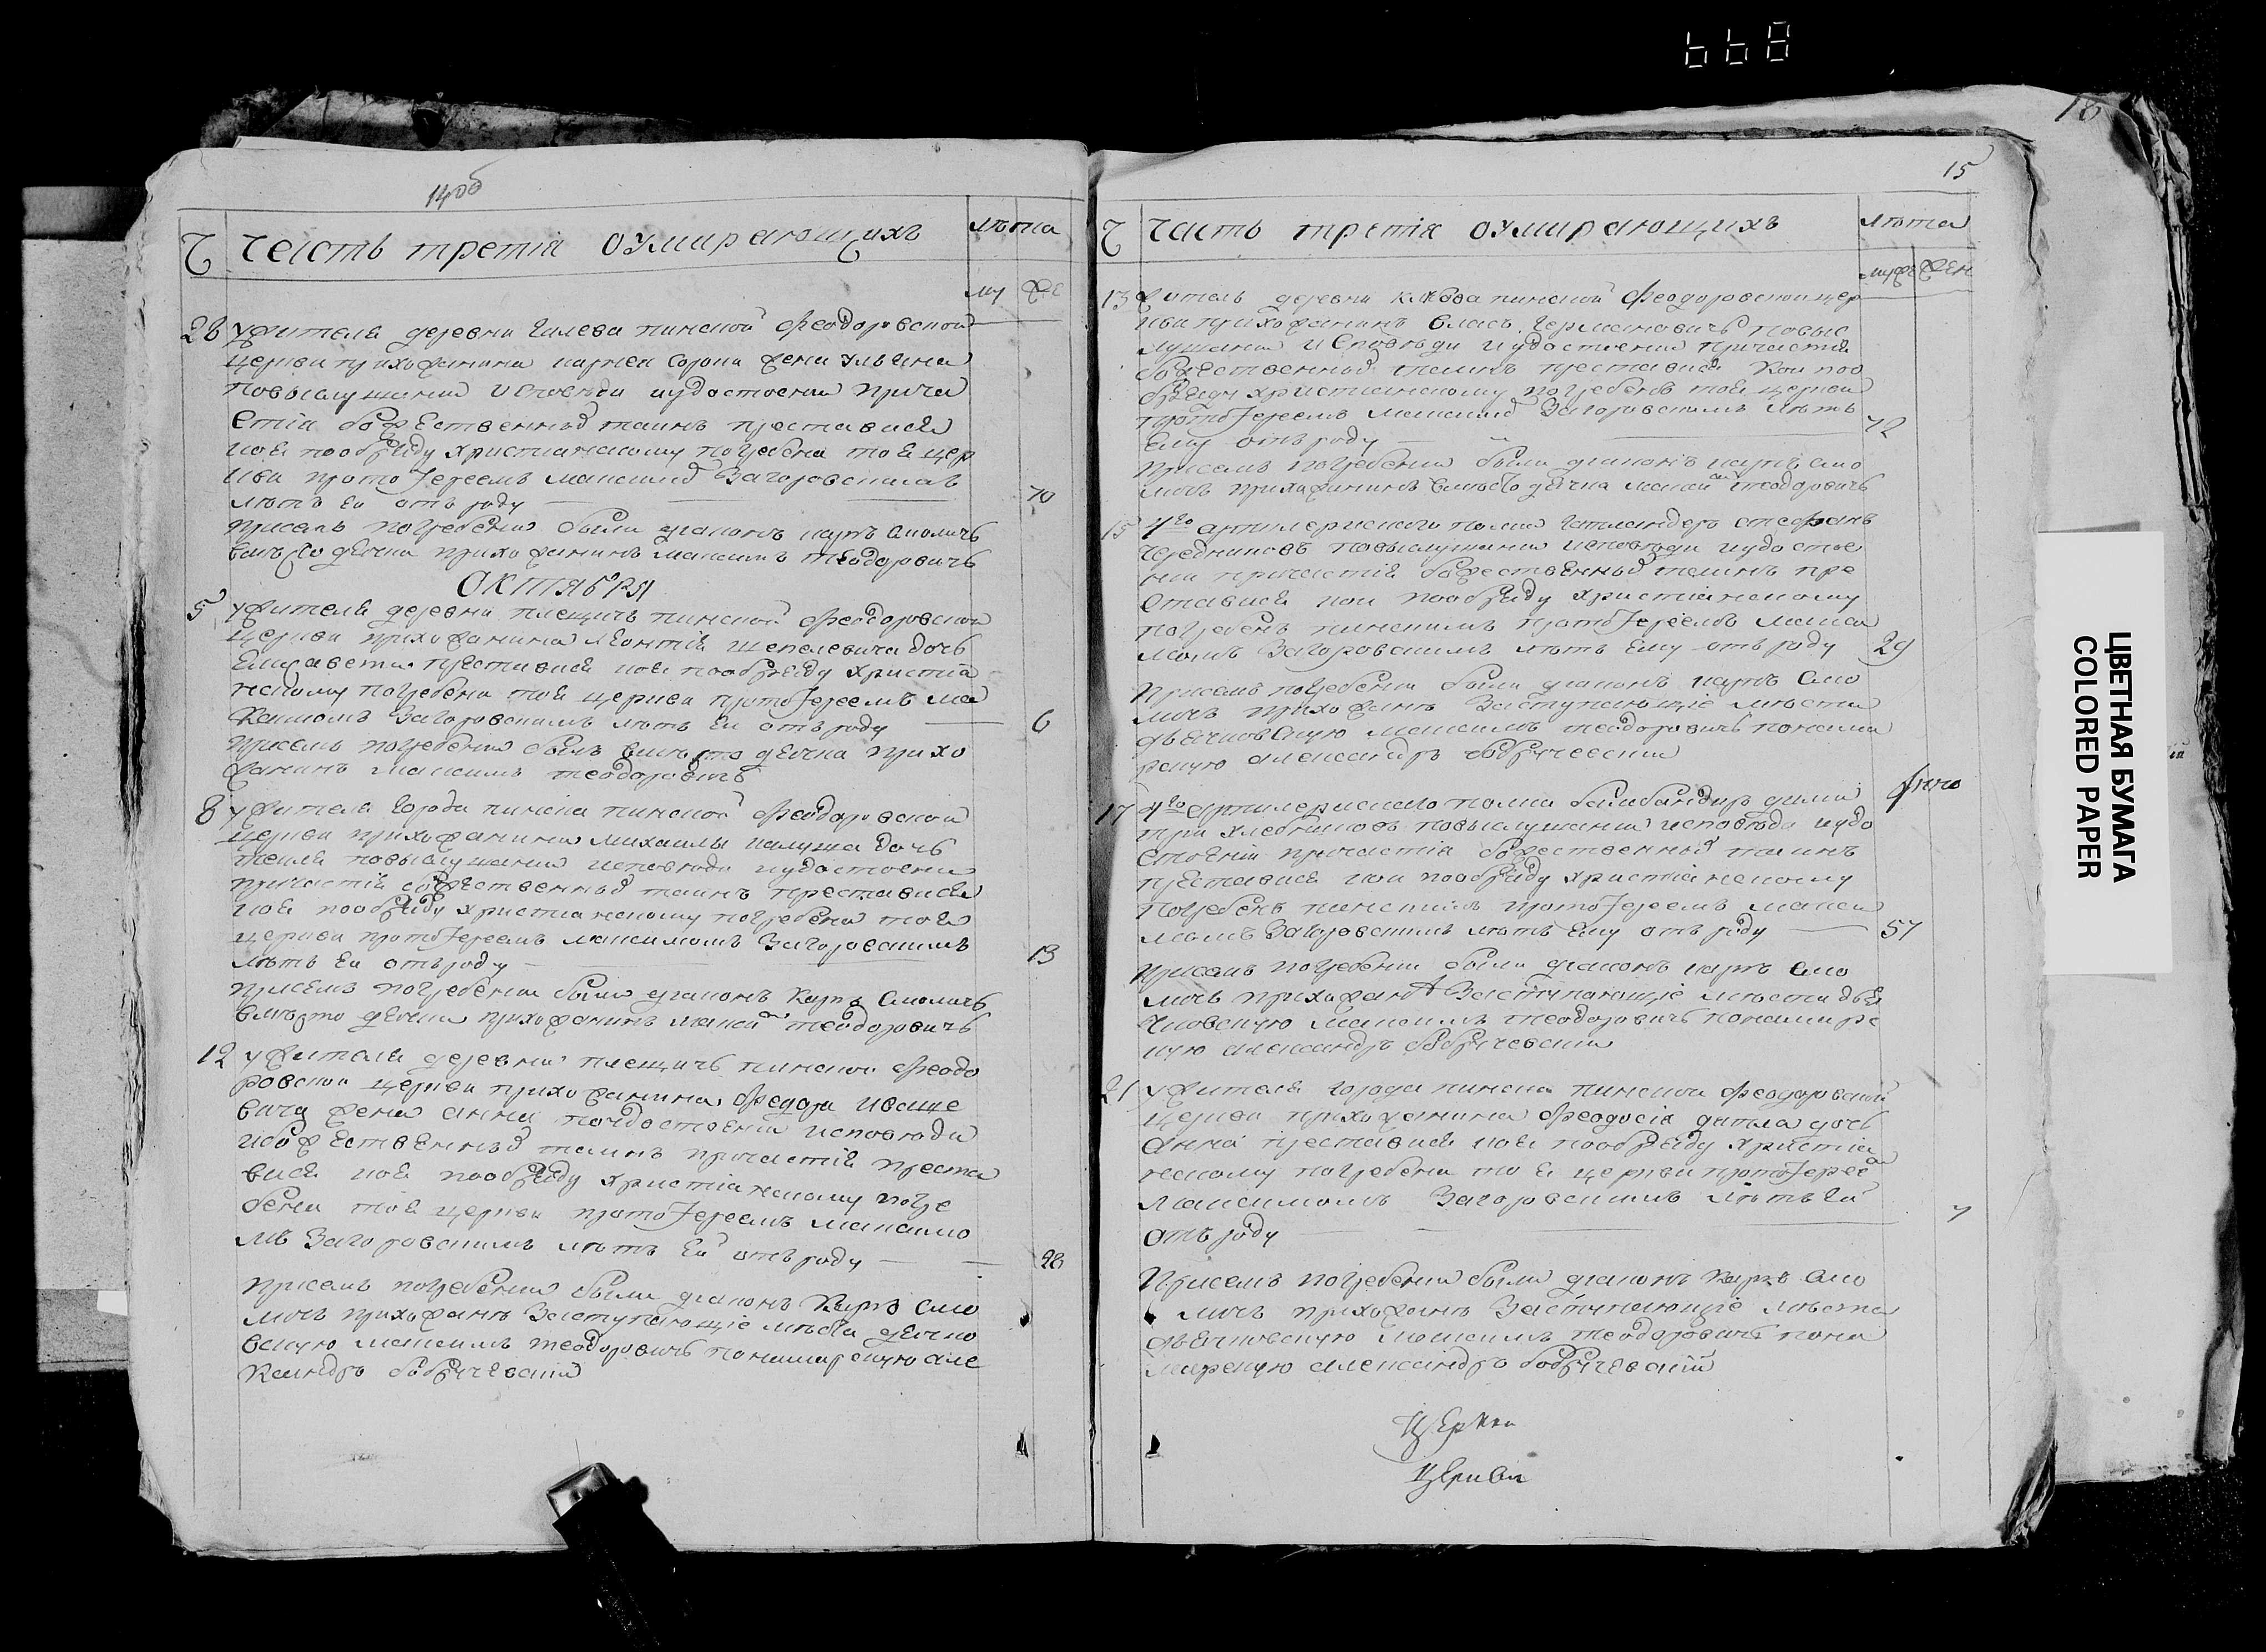 668
18
14об
Ч Часть третія оумирающихъ лѣта
му же
28 у жителя деревни Галева пинской феодоровской
церкви прихожанина карпея Сорони жена ульяна
по выслушаніи исповѣди и удостоеніи прича
стія божественныхъ таинъ преставися
коя по обряду христианскому погребена тоя цер
кви протоІереемъ максимо Загоровскимъ
лѣтъ ей отъ роду 70
при семъ погребеніи были діаконъ карпъ Смоличъ
вмѣсто дьячка прихожанинъ максимъ теодоровичъ
ОКТЯБРЯ
5 у жителя деревни плещичъ пинской феодоровской
церкви прихожанина леонтія щепелевича дочь
Елисавета преставися коя по обряду христиа
нскому погребена тоя церкви протоІереемъ ма
ксимомъ Загоровскимъ лѣтъ ей отъ роду 6
при семъ погребеніи былъ вмѣсто дьячка прихо
жанинъ максимъ теодоровичъ
8 у жителя города пинска пинской феодоровской
церкви прихожанина михаилы калуша дочь
текля по выслушаніи исповѣди и удостоеніи
причастія божественныхъ таинъ преставися
коя по обряду христианскому погребена тоя
церкви протоІереемъ максимомъ Загоровскимъ
лѣтъ ей отъ роду 13
при семъ погребеніи были діаконъ Карпъ Смоличъ
вмѣсто дьячка прихожанинъ макси теодоровичъ
12 у жителя деревни плещичъ пинской феодо
ровской церкви прихожанина федора иваще
вича жена анна по удостоеніи исповѣди
и божественныхъ таинъ причастія преста
вися коя по обряду христіанскому погре
бена тоя церкви протоІереемъ максимо
мъ Загоровскимъ лѣтъ ей отъ роду 28
При семъ погребеніи были діаконъ Карпъ Смо
личъ прихожанѣ Заступающіе мѣста дьячко
вскую максимъ теодоровичъ пономарскую але
ксандръ бобрічевскій
15
Ч Часть третія оумирающихъ лѣта
муже жен
13 житель деревни пинской феодоровской цер
кви прихожанинъ власъ Германовичъ по выс
лушаніи исповѣди и удостоеніи причастія
божественныхъ таинъ преставися кои по о
бряду христианскому погребенъ тоя церкви
протоІереемъ максимо Загоровскимъ лѣтъ
ему отъ роду 72
При семъ погребеніи были діаконъ карпъ Смо
личъ прихожанинъ вмѣсто дьячка макси теодоровичъ
15 4го артилерискаго полка Гатландеръ стефанъ
Чередниковъ по выслушаніи исповѣди и удостое
ніи причастія божественныхъ таинъ пре
ставися кои по обряду христіанскому
погребенъ пинскимъ протоІереемъ макси
момъ Загоровскимъ лѣтъ Ему отъ роду 29
При семъ погребеніи были діаконъ карпъ Смо
личъ прихожанѣ Заступающіе мѣста
дьячковскую максимъ теодоровичъ понома
рскую александръ бобрічевскій
17 4го артилерискаго полка бамбандиръ дими
трій хлебниковъ по выслушаніи исповѣди и удо
стоеніи причастія божественныхъ таинъ
преставися кои по обряду христіанскому
Погребенъ пинскимъ протоІереемъ макси
момъ Загоровскимъ лѣтъ Ему отъ роду 57
При семъ погребеніи были діаконъ карпъ Смо
личъ прихожанѣ Заступающіе мѣста дья
чковскую максимъ теодоровичъ пономарс
кую александръ бобрічевскій
21 у жителя города пинска пинской феодоровской
церкви прихожанина феодосія дитла дочь
Анна преставися коя по обряду христіа
нскому погребена тоя церкви протоІерее
максимомъ Загоровскимъ лѣтъ ей 7
отъ роду
При семъ погребеніи были діаконъ Карпъ Смо
личъ прихожанѣ Заступающіе мѣста
дьячковскую максимъ теодоровичъ поно
марскую александръ бобрічевскій
Церкви
Церкви
ЦВЕТНАЯ БУМАГА
COLORED PAPER